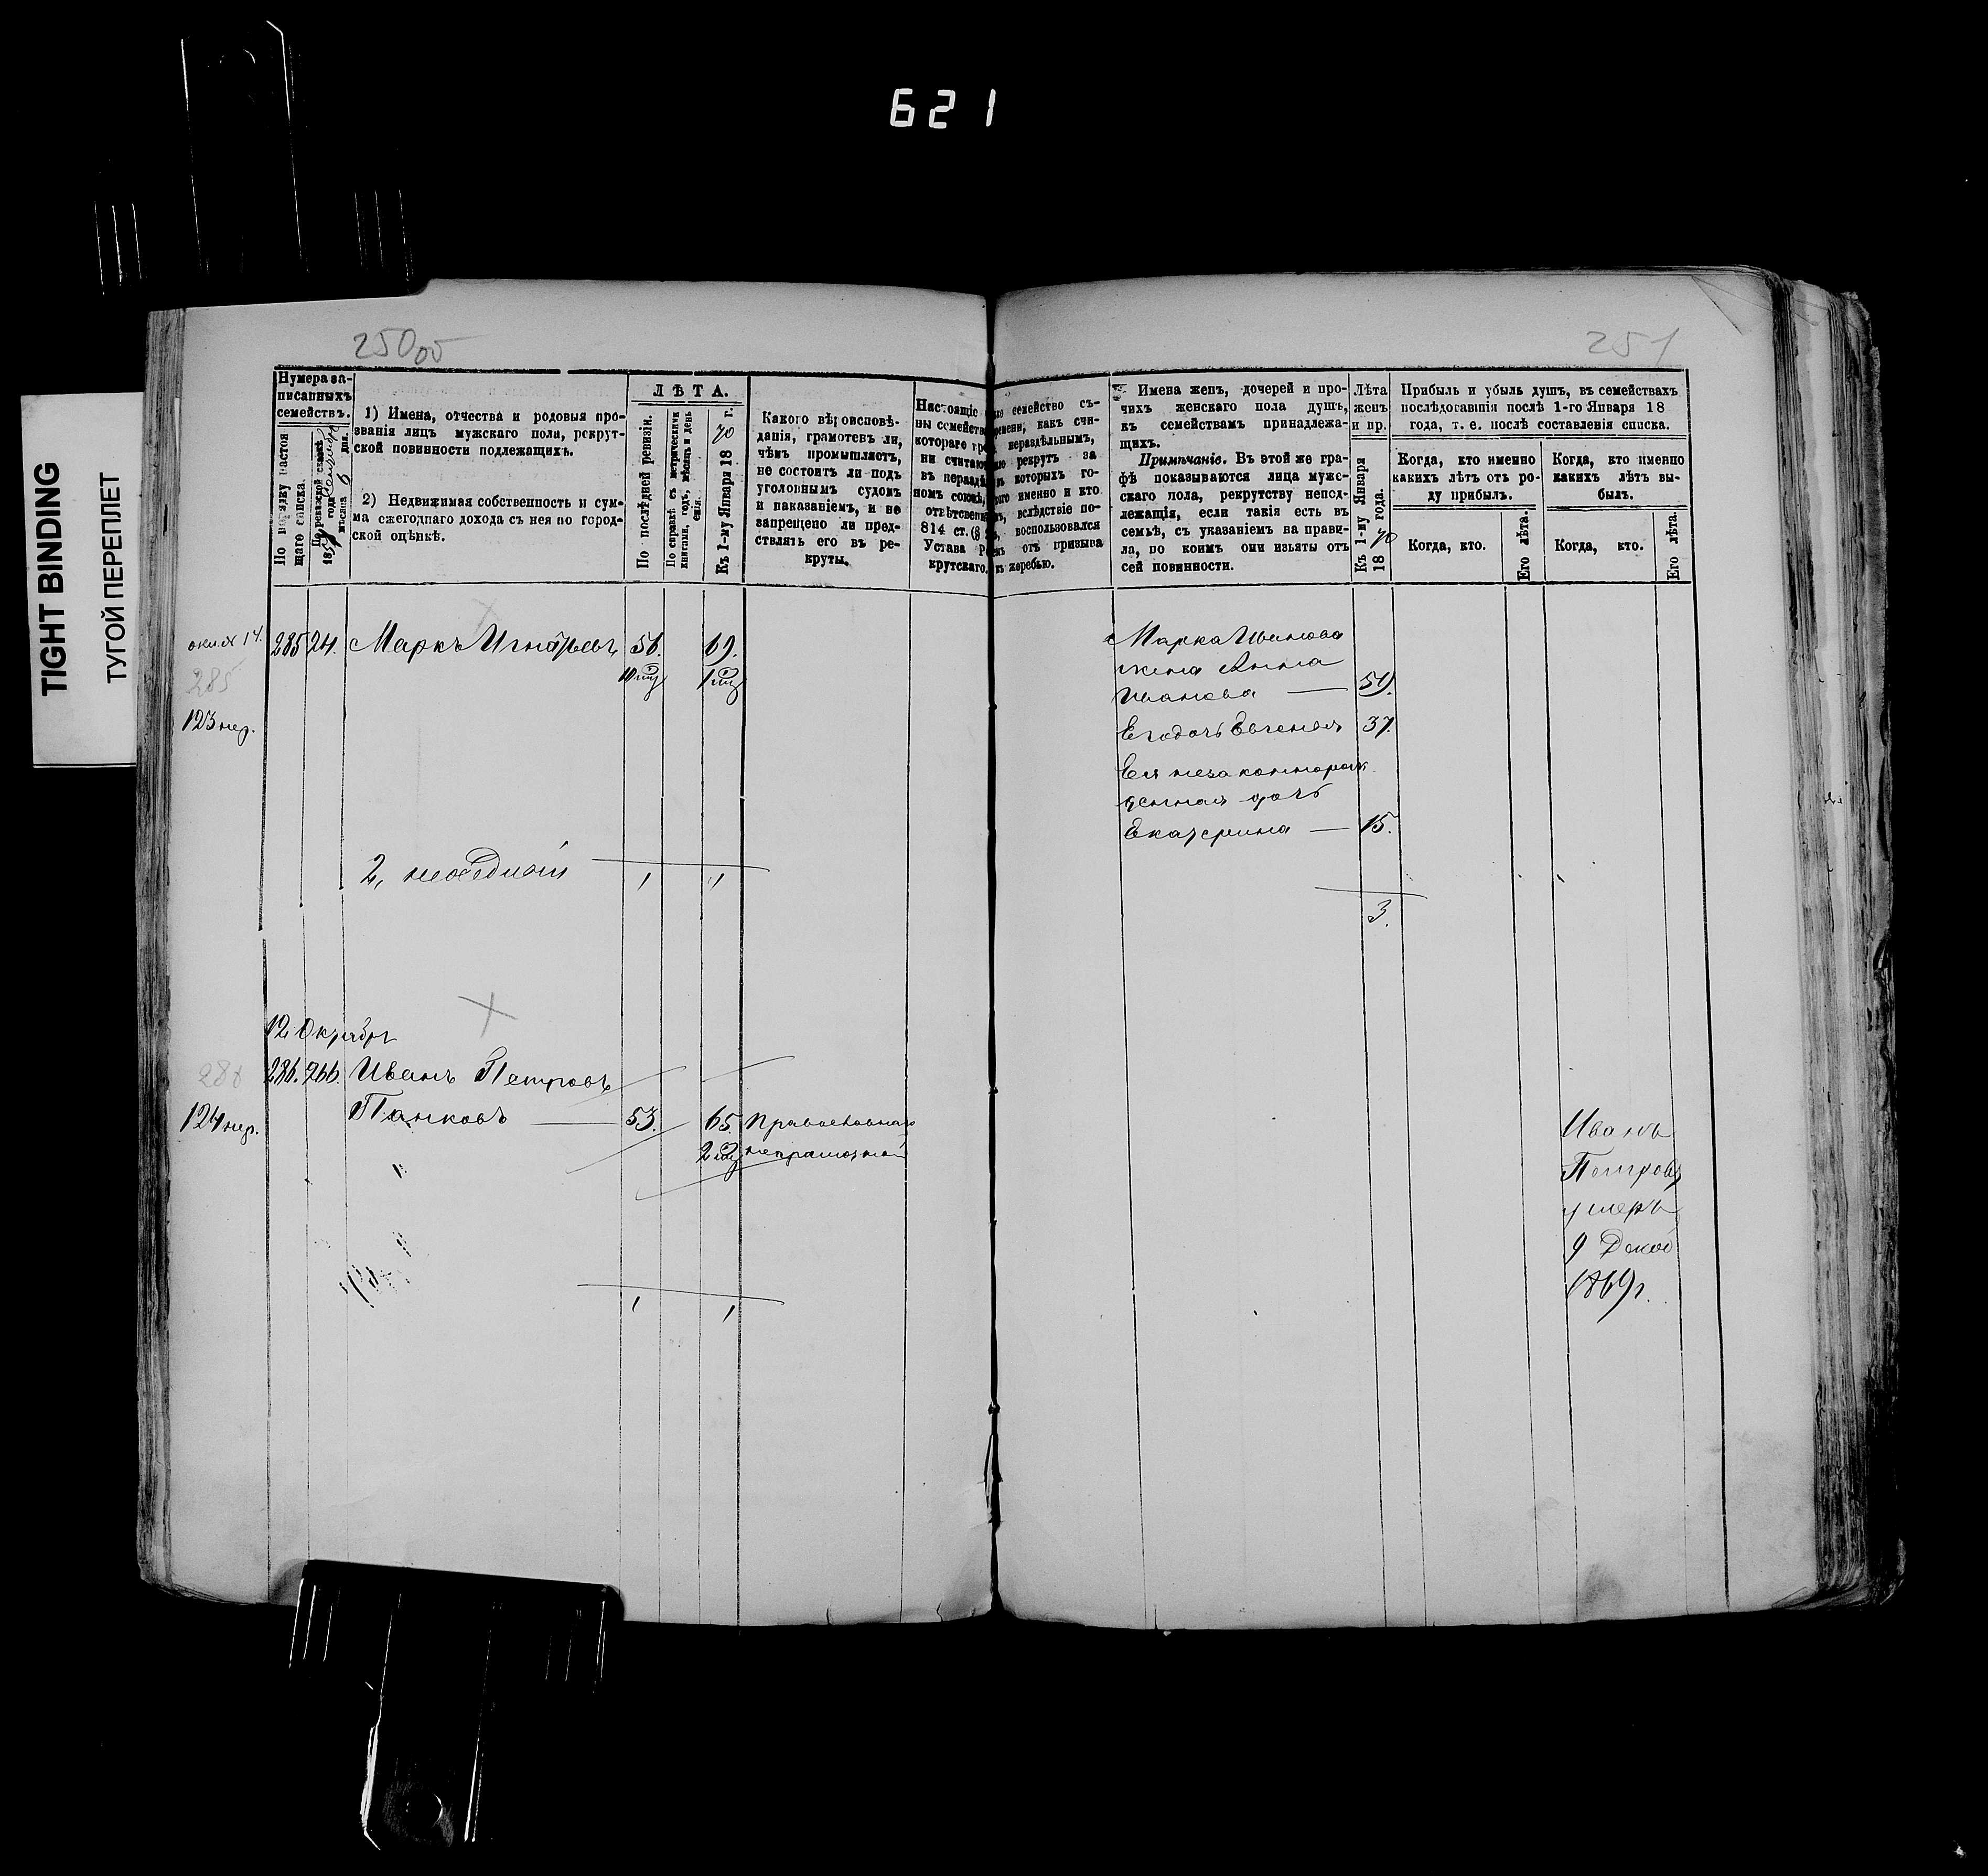 621
TIGHT BINDING
ТУГОЙ ПЕРЕПЛЕТ
250 об
251
Нумера за-
писанныхъ
семействъ.
По порядку настоя
щаго списка.
По ревизской сказкѣ
1857 года
мѣсяца 6 дня.
1) Имена, отчества и родовыя про-
званія лицъ мужскаго пола, рекрут-
ской повинности подлежащихъ.
2) Недвижимая собственность и сум-
ма ежегоднаго дохода съ нея по город-
ской оцѣнкѣ.
ЛѢТА.
По послѣдней ревизіи.
По справкѣ съ метрическими
книгами, годъ, мѣсяцъ и день
Къ 1-му Января 1870 г.
Какого вѣроисповѣ-
данія, грамотенъ ли,
чѣмъ промышляетъ,
не состоитъ ли подъ
уголовнымъ судомъ
и наказаніемъ, и не
запрещено ли пред-
ставлять его въ ре-
круты.
Настоящіе
ны семейства
котораго
ни считаю
въ нераздѣ
номъ союзѣ,
отвѣтствен
814 ст. (§
Устава Ре
крутскаго.
семейство съ-
времени, какъ счи-
нераздѣльнымъ,
рекрутъ за
которыхъ го-
именно и кто
вслѣдствіе по-
воспользовался
отъ призыва
къ жеребью.
Имена женъ, дочерей и про-
чихъ женскаго пола душъ,
къ семействамъ принадлежа-
щихъ.
Примѣчаніе. Въ этой же гра-
фѣ показываются лица мужс-
каго пола, рекрутству непод-
лежащія, если такія есть въ
семьѣ, съ указаніемъ на прави-
ла, по коимъ они изъяты отъ
сей повинности.
Лѣта
женъ
и пр.
Къ 1-му Января
1870 года.
Прибыль и убыль душъ, въ семействахъ
послѣдовавшія послѣ 1-го Января 18
года, т. е. послѣ составленія списка.
Когда, кто именно
какихъ лѣтъ отъ ро-
ду прибылъ.
Когда, кто именно
какихъ лѣтъ вы-
былъ.
Когда, кто.
Его лѣта.
Когда, кто.
Его лѣта.
285 24. Маркъ Игнатьевъ 56. 69.
285
123 нер.
Марка Иванова
жена Анна
Иванова — 59.
Его дочь Евгения 37.
Ея незаконнорож
денная дочь
Екатерина — 15.
2, неосѣдлой 1 1
3.
12 Октября
286. 266. Иванъ Петровъ
Панковъ — 53. 65. Православнаго
124 нер.
неграмотной
Иванъ
Петровъ
умеръ
9 Декаб
1869 г.
1 1